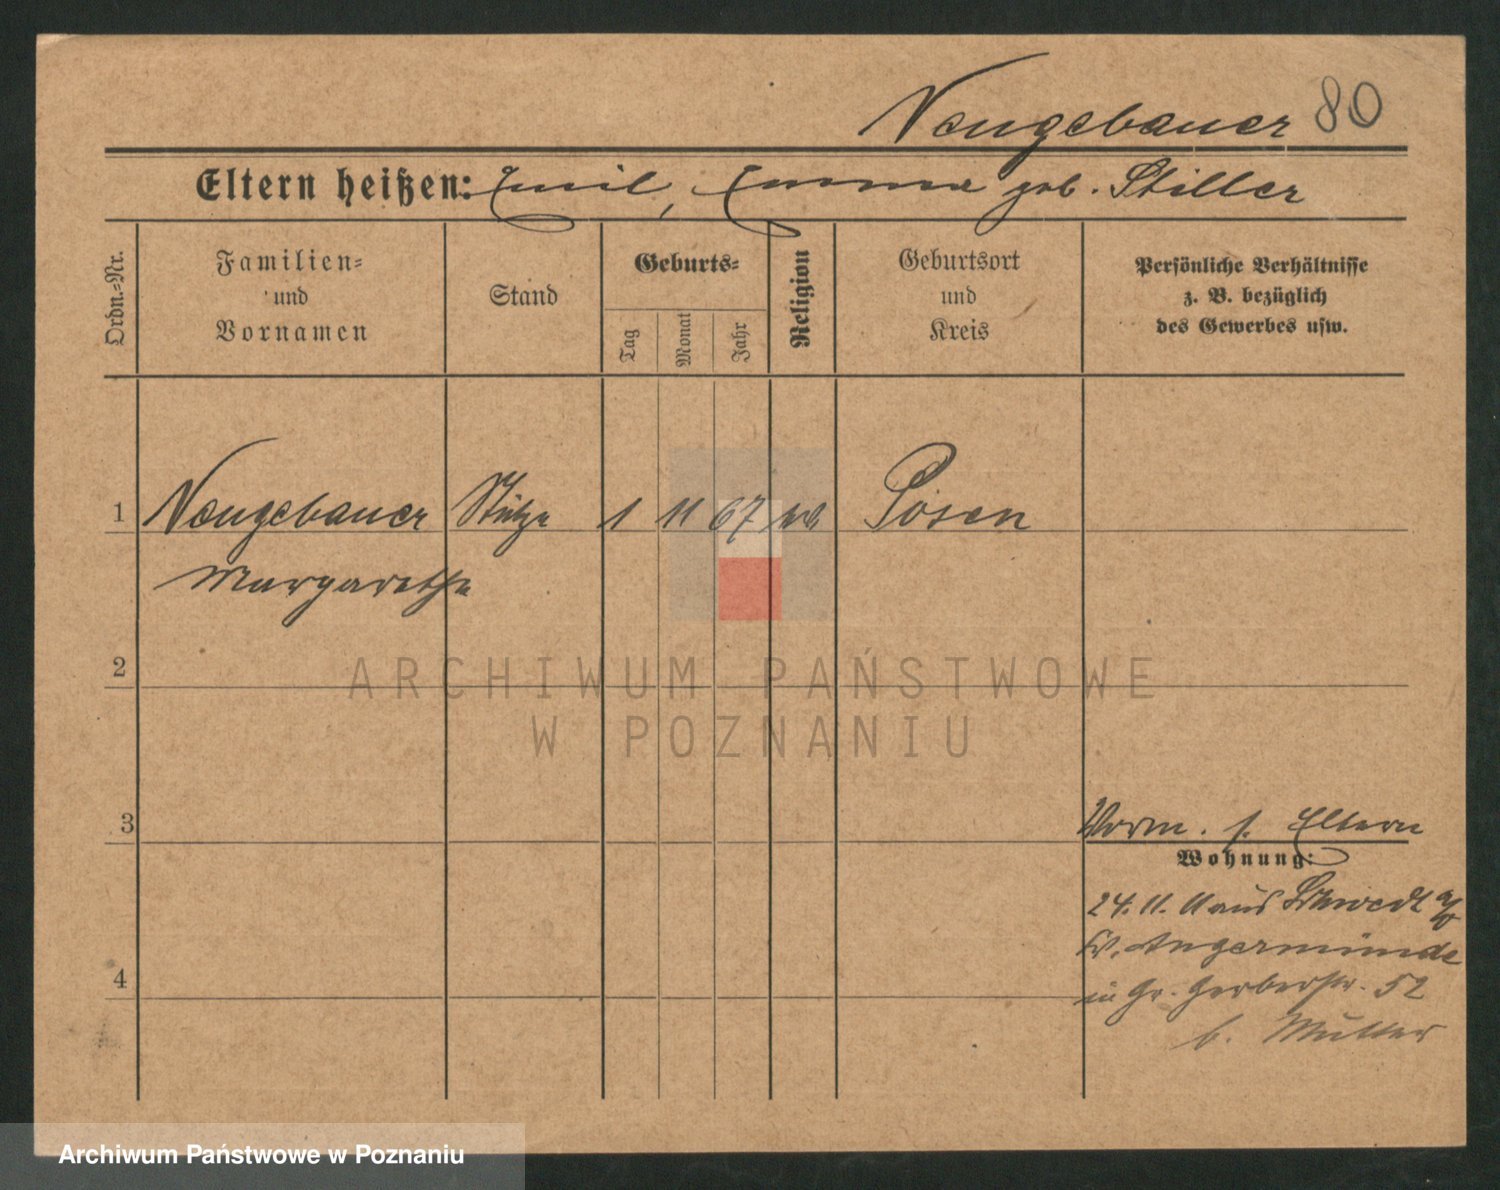 Neugebauer 80
Eltern heißen: Emil, Emma geb. Stiller
Ordn.=Nr.
Familien=
und
Vornamen
Stand
Geburts=
Tag
Monat
Jahr
Religion
Geburtsort
und
Kreis
Persönliche Verhältnisse
z. B. bezüglich
des Gewerbes usw.
1 Neugebauer Stütze 1 11 67 Posen
Margarethe
2
ARCHIWUM PAŃSTWOWE
W POZNANIU
3
Vorm. s. Eltern
Wohnung:
24. 11. 11 aus Schwedt a/O
Kr. Angermünde
4
in Gr. Gerberstr. 52
b. Mutter
Archiwum Państwowe w Poznaniu